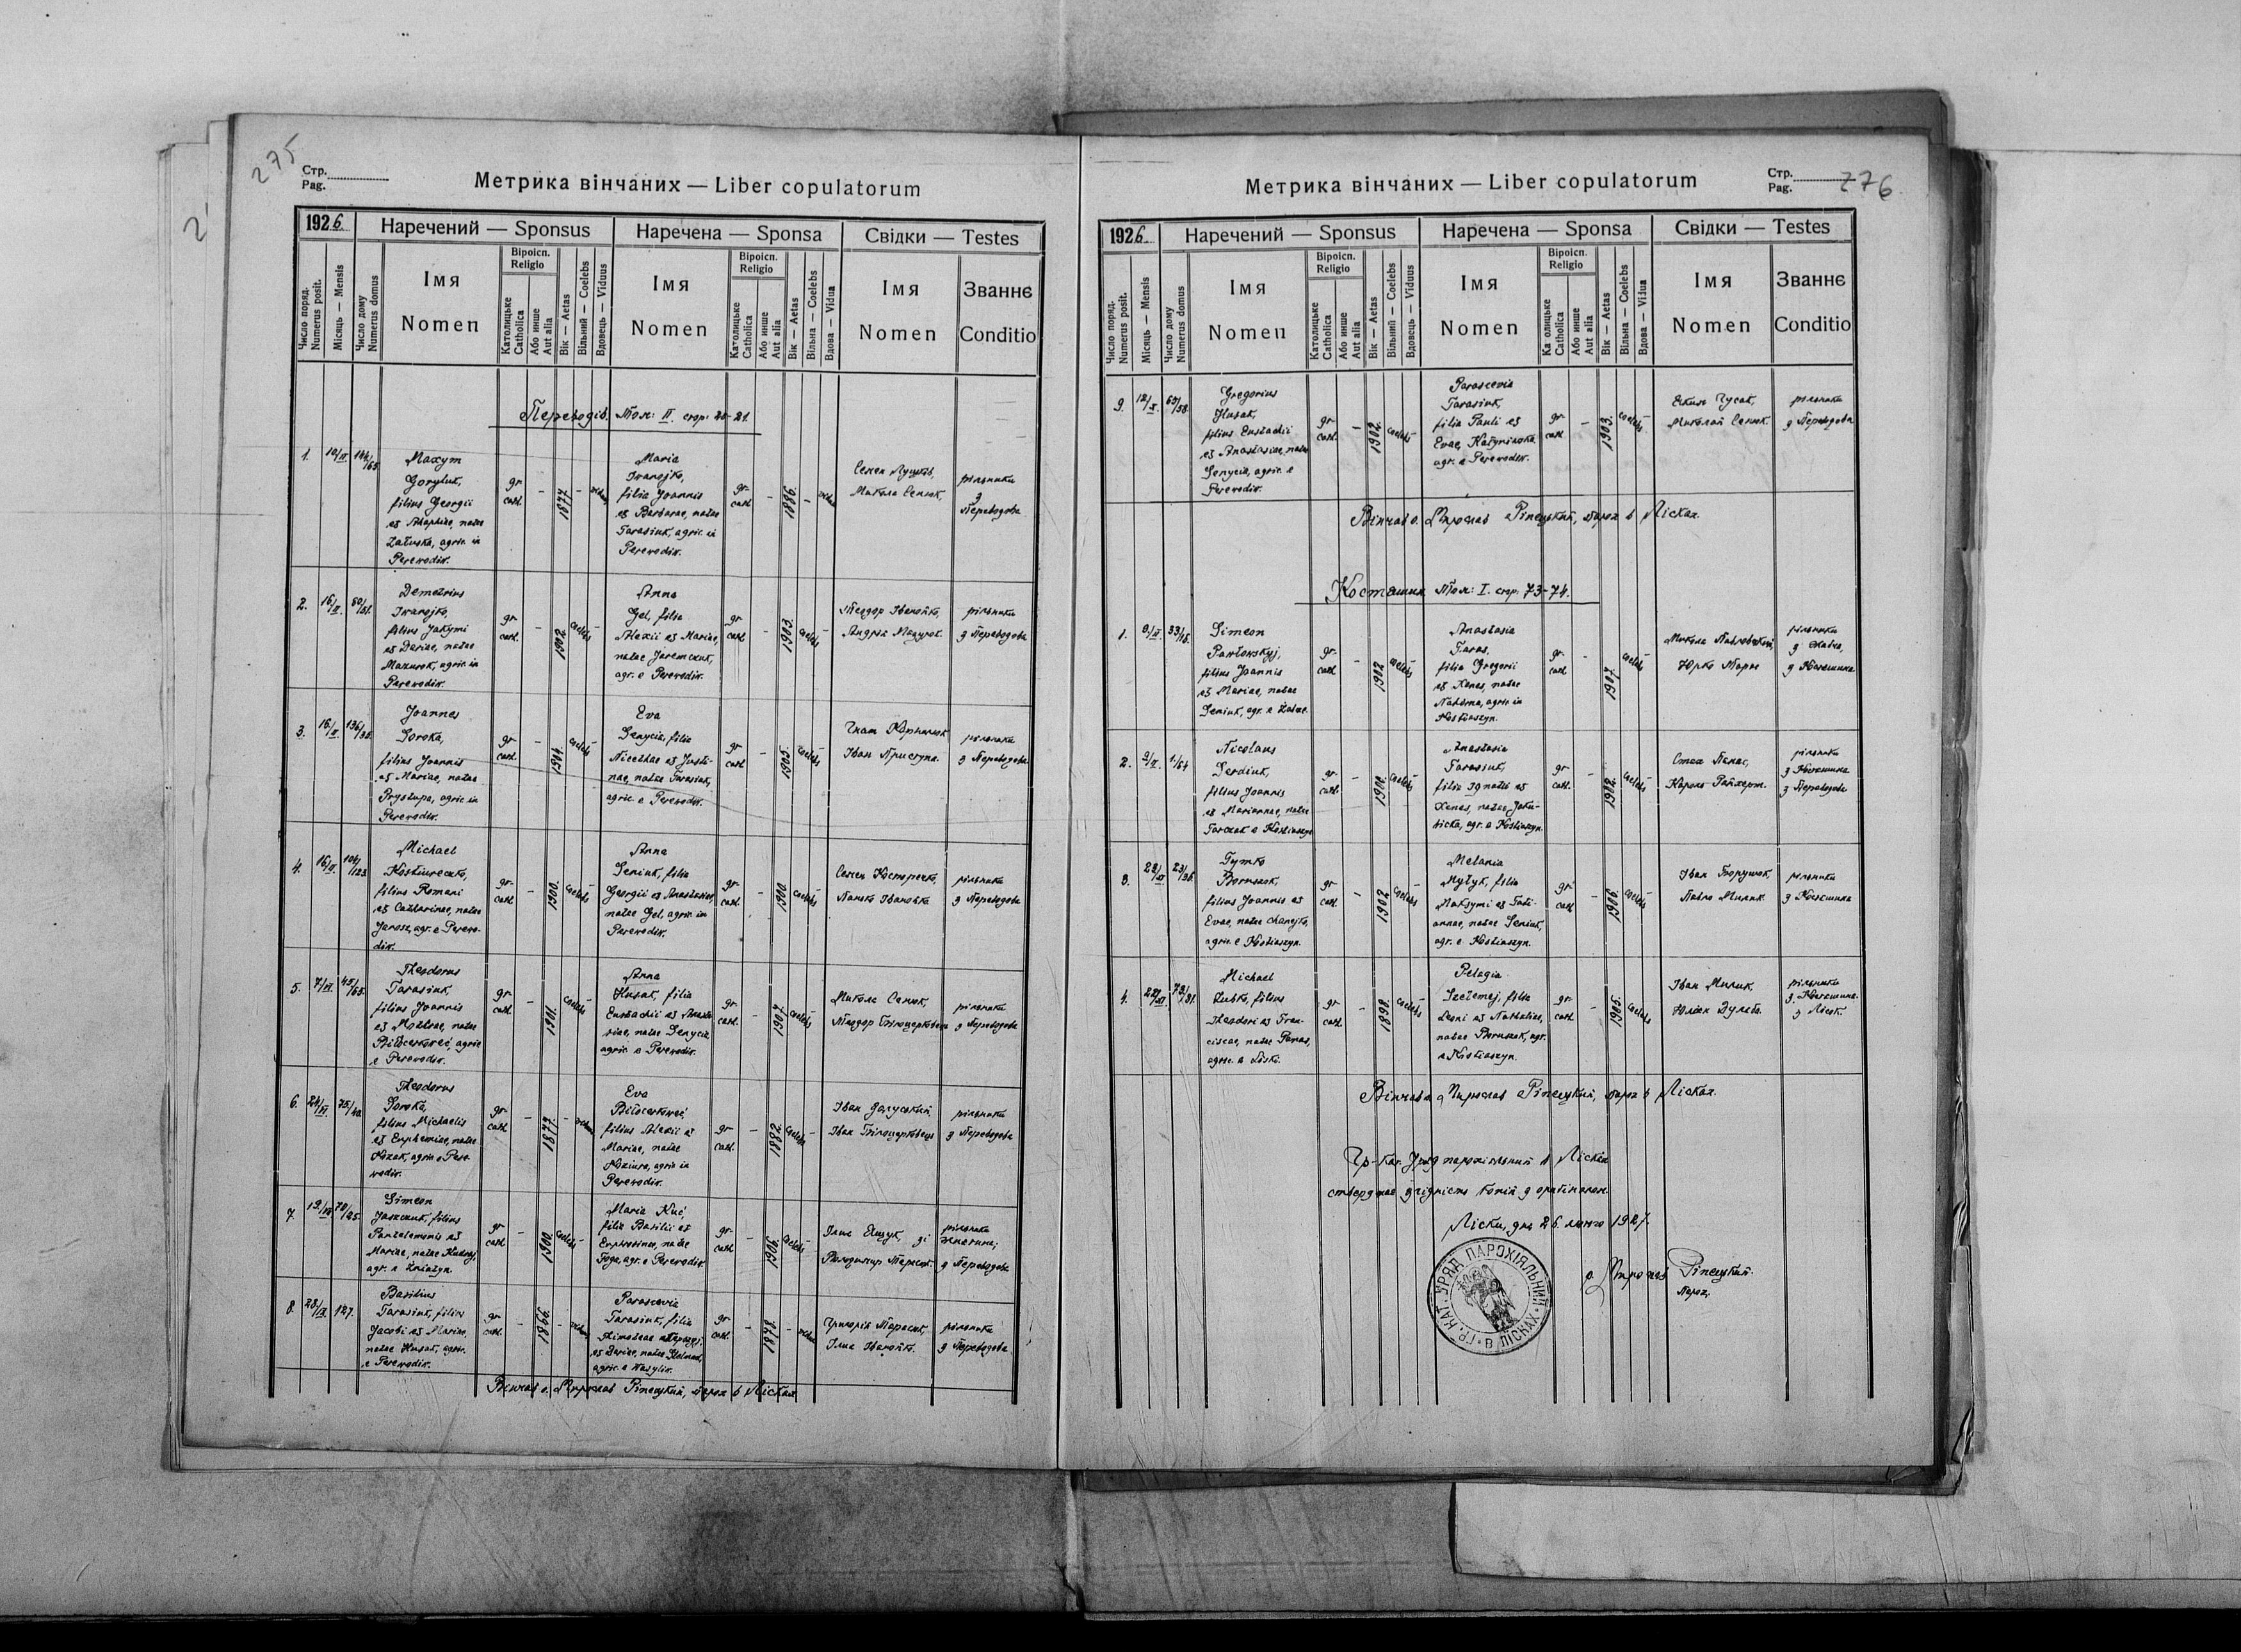 275
Стр.
Pag.
Метрика вінчаних — Liber copulatorum
1926.
Наречений — Sponsus
Наречена — Sponsa
Свідки — Testes
Число поряд.
Numerus posit.
Місяць — Mensis
Число дому
Numerus domus
Імя
Nomen
Віроісп.
Religio
Католицьке
Catholica
Або инше
Aut alia
Вік — Aetas
Вільний — Coelebs
Вдовець — Viduus
Імя
Nomen
Віроісп.
Religio
Католицьке
Catholica
Або инше
Aut alia
Вік — Aetas
Вільна — Coelebs
Вдова — Vidua
Імя
Nomen
Званнє
Conditio
Переводів. Том: II. стор: 20-21.
1.
144/65
Maxym
Goryluk,
filius Georgii
Załuska, agric. in
Perewodiw.
gr. cath.
1877.
Maria
Iwanejko,
filia Joannis
et Barbarae, natae
Tarasiuk, agric. in
Perewodiw.
gr. cath.
1886.
Микола Сенюк,
рільники
з
Переводова
2.
16/II.
Demetrius
Iwanejko,
filius Jakymi
et Dariae, natae
Mazurok, agric. in
Perewodiw.
gr. cath.
1902.
coelebs
Anna
Gel, filia
Alexii et Mariae,
natae Jaremczuk,
agr. e Perewodiw.
gr. cath.
1903.
coelebs
Андрій Мазурок.
рільники
з Переводова
3.
16/II.
136/35.
Joannes
Soroka,
filius Joannis
et Mariae, natae
Prystupa, agric. in
Perewodiw.
gr. cath.
1904.
coelebs
Eva
Senycia, filia
Nicethae et Justi-
nae, natae Tarasiuk,
agric. e Perewodiw.
gr. cath.
1905.
coelebs
Іван Приступа.
рільники
з Переводова
4.
16/II.
104/123
Michael
Kosturecko,
filius Romani
et Catharinae, natae
Jarosz, agr. e Perewo-
diw.
gr. cath.
1900.
coelebs
Anna
Seniuk, filia
Georgii et Anastasiae,
natae Gel, agric. in
Perewodiw.
gr. cath.
1900
coelebs
Семен
рільники
з Переводова
5.
7/VI.
45/65.
Theodorus
Tarasiuk,
filius Joannis
natae
Biłocerkoweć, agric.
e Perewodiw.
gr. cath.
1901.
coelebs
Anna
Husak, filia
Eustachii et Anasta-
siae, natae Senycia
agric. e Perewodiw.
gr. cath.
1907.
coelebs
Микола Сенюк,
Теодор Білоцерковець
рільники
з Переводова
6.
24/VI.
75/40.
Theodorus
Soroka,
filius Michaelis
et Euphemiae, natae
Kozak, agric. e Pere-
wodiw.
gr. cath.
1877.
Eva
Biłocerkoweć,
filius Alexii et
Mariae, natae
Koziura, agric. in
Perewodiw.
gr. cath.
1882.
coelebs
Іван Галуський.
Іван Білоцерковець
рільники
з Переводова
7.
70/25.
Simeon
Jaszczuk, filius
Pantelemonis et
agr. e Żniatyn.
gr. cath.
1900.
coelebs
Maria Kuć,
filia Basilii et
Euphrosinae, natae
agr. e Perewodiw.
gr. cath.
1906.
coelebs
Ілля Ящук, зі
рільники
з Переводова
8.
28/IX.
127.
Basilius
Tarasiuk, filius
Jacobi et Mariae,
natae Husak, agric.
e Perewodiw.
gr. cath.
1866.
Parascevia
Tarasiuk, filia
agric. e Wasyliw.
gr. cath.
1878.
Григорій Тарасюк,
Ілля Іванейко.
рільники
з Переводова
Вінчав о. Мирослав Ріпецький, парох в Лісках
276
Стр.
Pag.
Метрика вінчаних — Liber copulatorum
1926.
Наречений — Sponsus
Наречена — Sponsa
Свідки — Testes
Число поряд.
Numerus posit.
Місяць — Mensis
Число дому
Numerus domus
Імя
Nomen
Віроісп.
Religio
Католицьке
Catholica
Або инше
Aut alia
Вік — Aetas
Вільний — Coelebs
Вдовець — Viduus
Імя
Nomen
Віроісп.
Religio
Ка олицьке
Catholica
Або инше
Aut alia
Вік — Aetas
Вільна — Coelebs
Вдова — Vidua
Імя
Nomen
Званнє
Conditio
9.
Gregorius
Husak,
filius Eustachii
et Anastasiae, natae
Senycia, agric. e
Perewodiw.
gr. cath.
1902.
coelebs
Parascevia
Tarasiuk,
filia Pauli et
Evae,
agr. e Perewodiw.
gr. cath.
1903.
coelebs
Гусак,
Николай Сенюк.
рільники
з Переводова
Вінчав о. Мирослав Ріпецький, парох в Лісках.
Костяшин. Том: I. стор. 73-74.
1.
Simeon
Pawłowskyj,
filius Joannis
et Mariae, natae
Seniuk, agr.
gr. cath.
1902
coelebs
Anastasia
Taras,
filia Gregorii
et Xenae, natae
agric. in
Kostiaszyn.
gr. cath.
1907.
coelebs
Микола Павловський,
Юрко
рільники
з Костяшина.
2.
9/II.
1/64
Nicolaus
Serdiuk,
filius Joannis
et Mariannae, natae
Tarczak e Kostiaszyn
gr. cath.
1901.
coelebs
Anastasia
Tarasiuk,
filia Ignatii et
Xenae, natae Jaku-
bicka, agr. e Kostiaszyn.
gr. cath.
1902.
coelebs
Стах Панас,
Кароль Райхерт.
рільники
з Костяшина
з Переводова
3.
23/36.
Tymko
Boruszok,
filius Joannis et
Evae, natae Chanejko,
agric. e Kostiaszyn.
gr. cath.
1902
coelebs
Melania
Myłyk, filia
Maksymi et Tati-
annae, natae Seniuk,
agr. e Kostiaszyn.
gr. cath.
1906.
coelebs
Іван Борушок,
Павло Милик.
рільники
з Костяшина
4.
Michael
Łubko, filius
Theodori et Fran-
ciscae, natae Panas,
agric. e Liski.
gr. cath.
1898.
coelebs
Pelagia
filia
Leoni et Nathaliae,
natae Boruszok, agr.
e Kostiaszyn.
gr. cath.
1905.
coelebs
Іван Милик,
Юліян Дулеба.
рільники
з Костяшина.
з Лісок.
Вінчав о. Мирослав Ріпецький, парох в Лісках.
Гр.-кат. Уряд парохіяльний в Лісках
стверджає згідність копій з оригіналом.
Ліски, дня 26. лютого 1927.
о. Мирослав Ріпецький.
парох.
ГР. КАТ. УРЯД ПАРОХІЯЛЬНИЙ В ЛІСКАХ